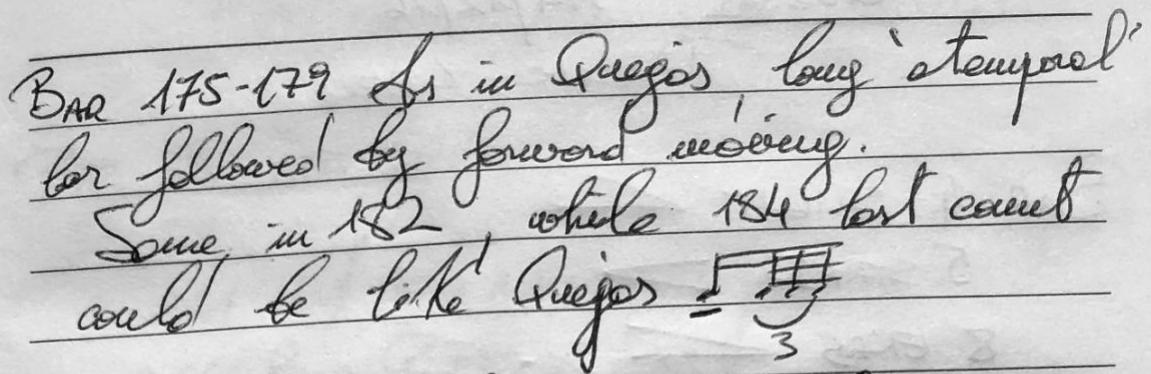 BAR 175-179 As in Quejas long 'atemporal'
bar followed by forward moving.
Same in 182, while 184 last count
could be like Quejas
3